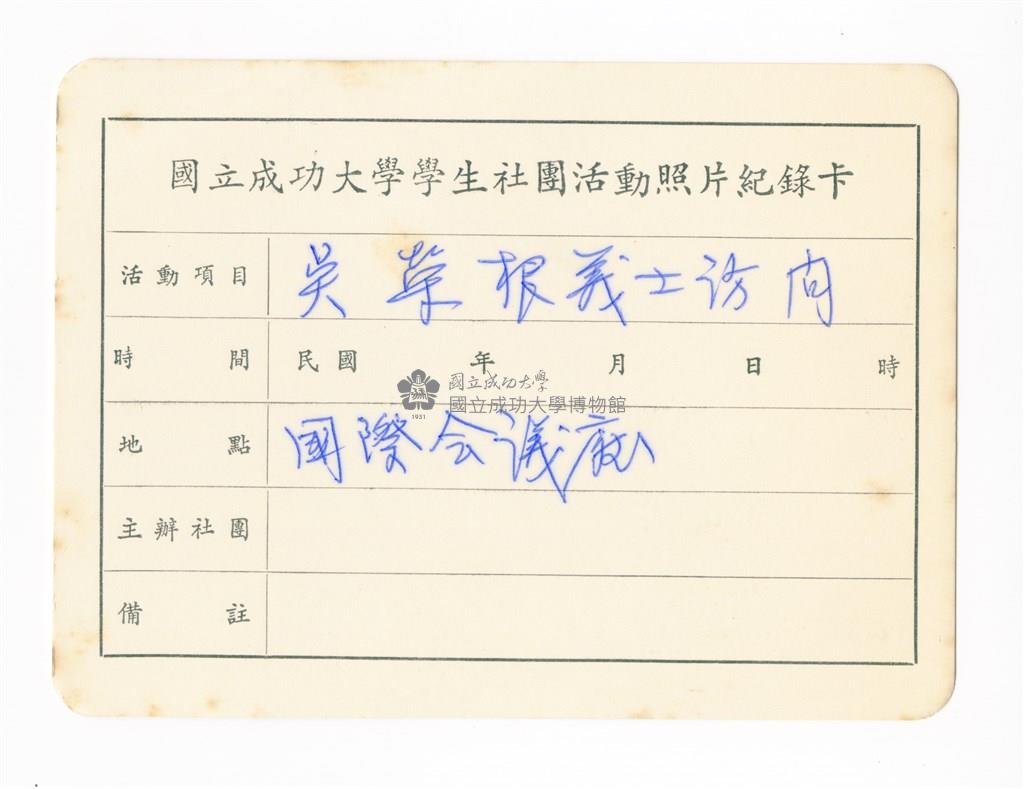 國立成功大學學生社團活動照片紀錄卡
活動項目 吳荣根義士访问
時間 民國 年 月 日 時
國立成功大學
國立成功大學博物館
1931
地點 國際会議廳
主辦社團
備註